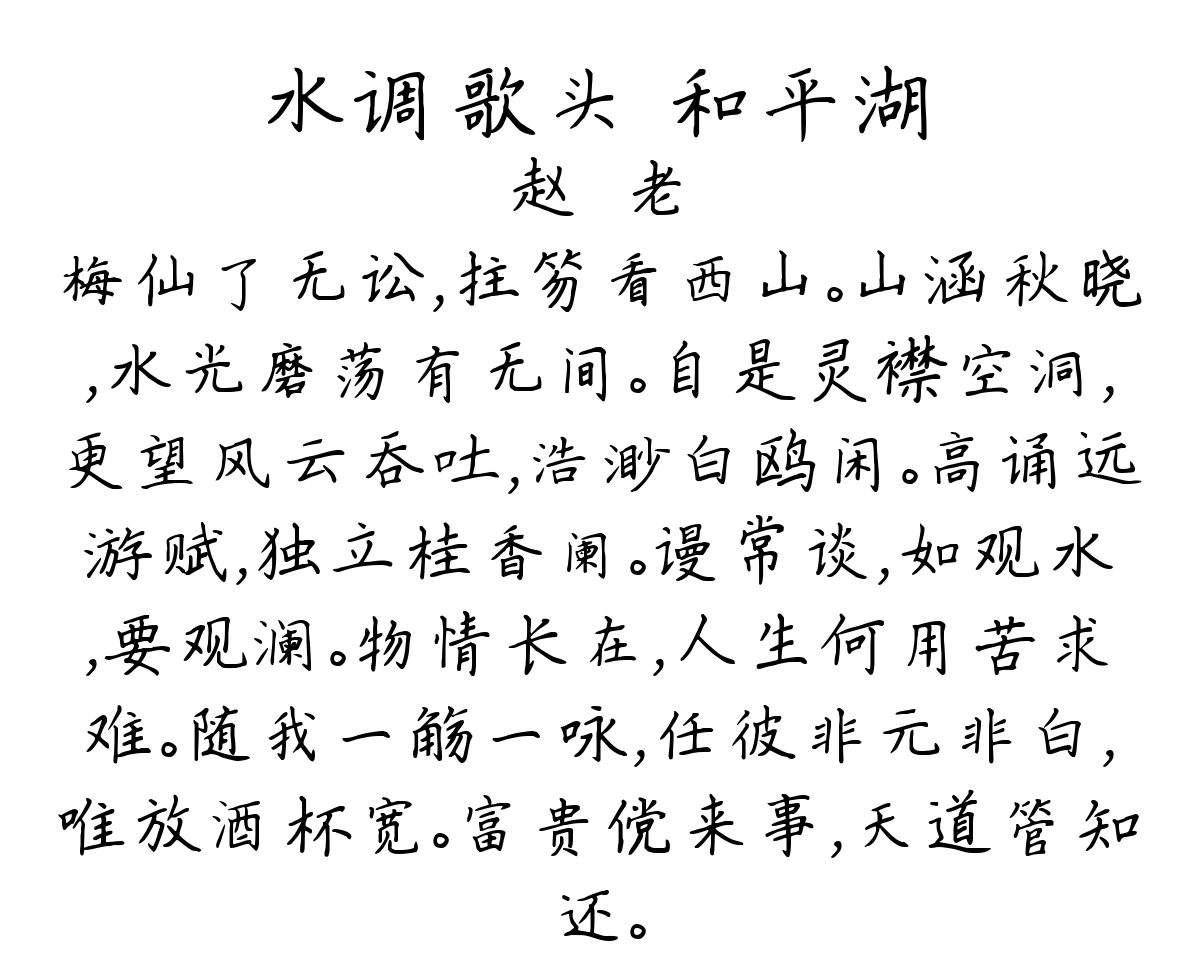 水调歌头 和平湖
赵 老
梅仙了无讼,拄笏看西山。山涵秋晓
,水光磨荡有无间。自是灵襟空洞,
更望风云吞吐,浩渺白鸥闲。高诵远
游赋,独立桂香阑。谩常谈,如观水
,要观澜。物情长在,人生何用苦求
难。随我一觞一咏,任彼非元非白,
唯放酒杯宽。富贵傥来事,天道管知
还。